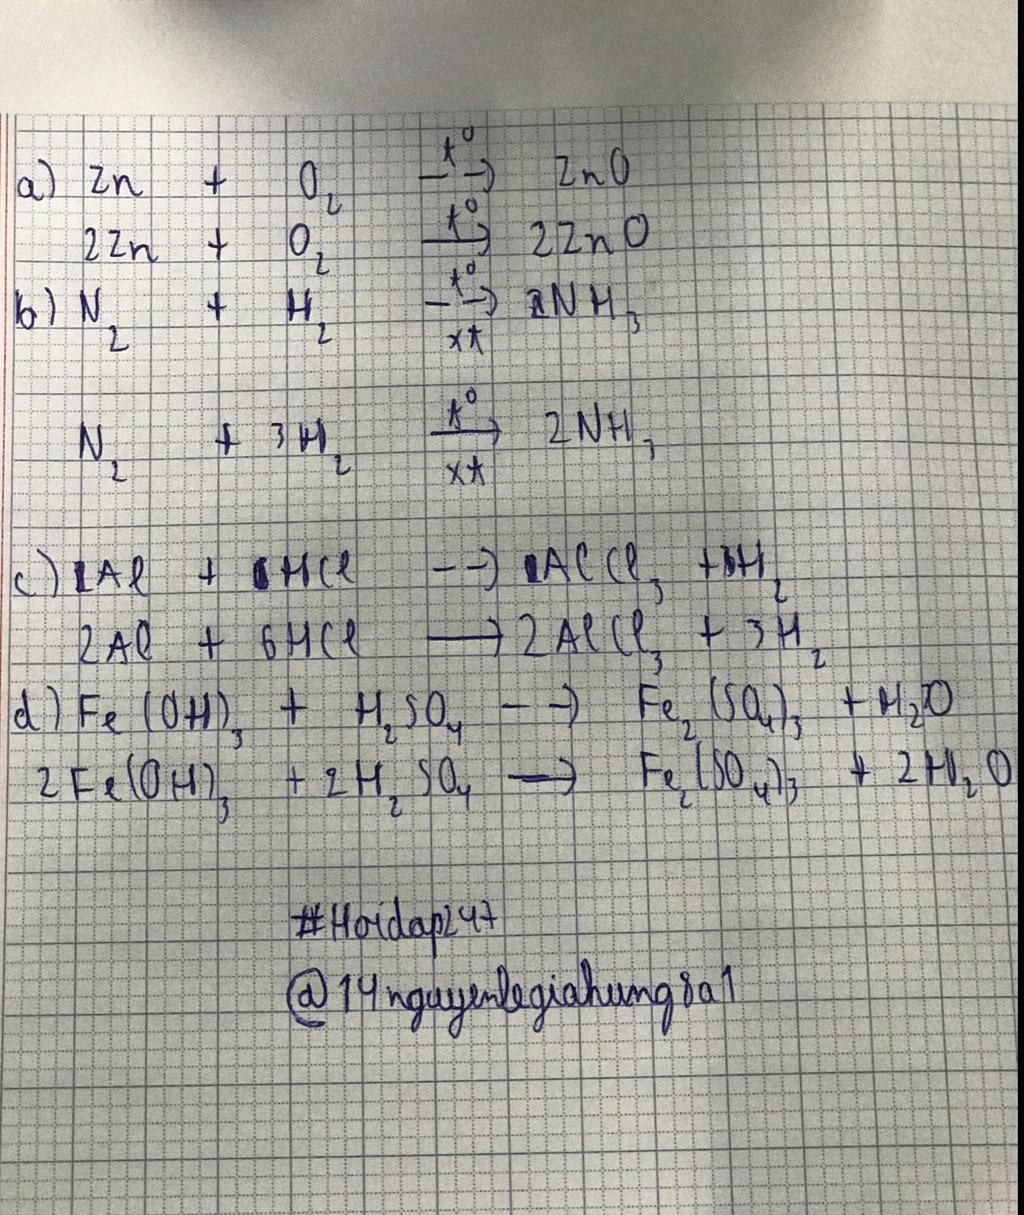 a) Zn + O₂ --t⁰--> ZnO
2Zn + O₂ —t⁰→ 2ZnO
b) N₂ + H₂ --t⁰, xt--> NH₃
N₂ + 3H₂ —t⁰, xt→ 2NH₃
c) Al + HCl --> AlCl₃ + H₂
2Al + 6HCl → 2AlCl₃ + 3H₂
d) Fe(OH)₃ + H₂SO₄ --> Fe₂(SO₄)₃ + H₂O
2Fe(OH)₃ + 2H₂SO₄ → Fe₂(SO₄)₃ + 2H₂O
#Hoidap247
@14nguyenlegiahung8a1